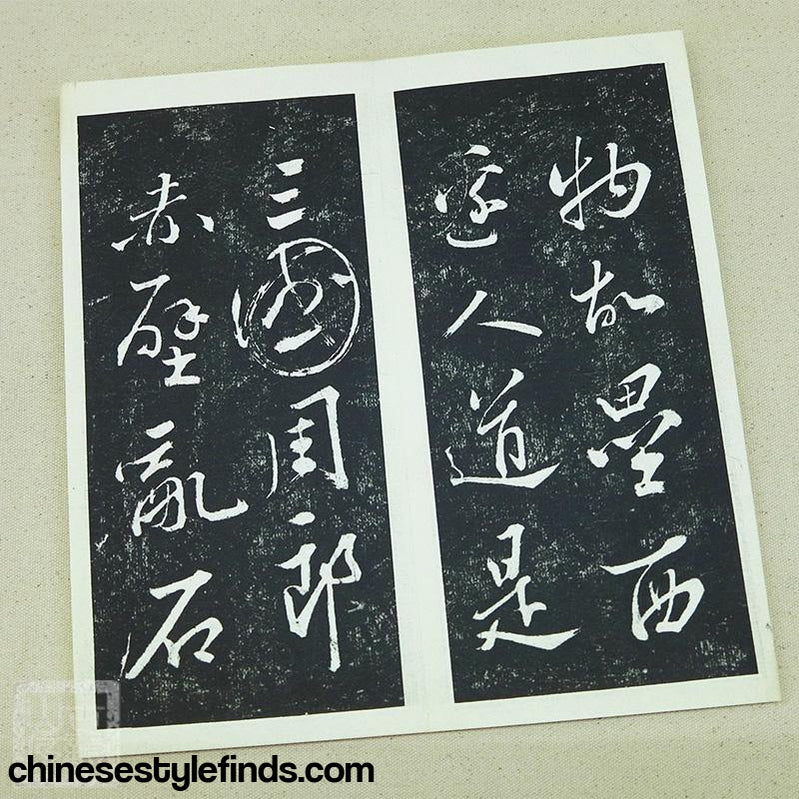 物故壘西
邊人道是
三國周郎
赤壁亂石
chinesestylefinds.com